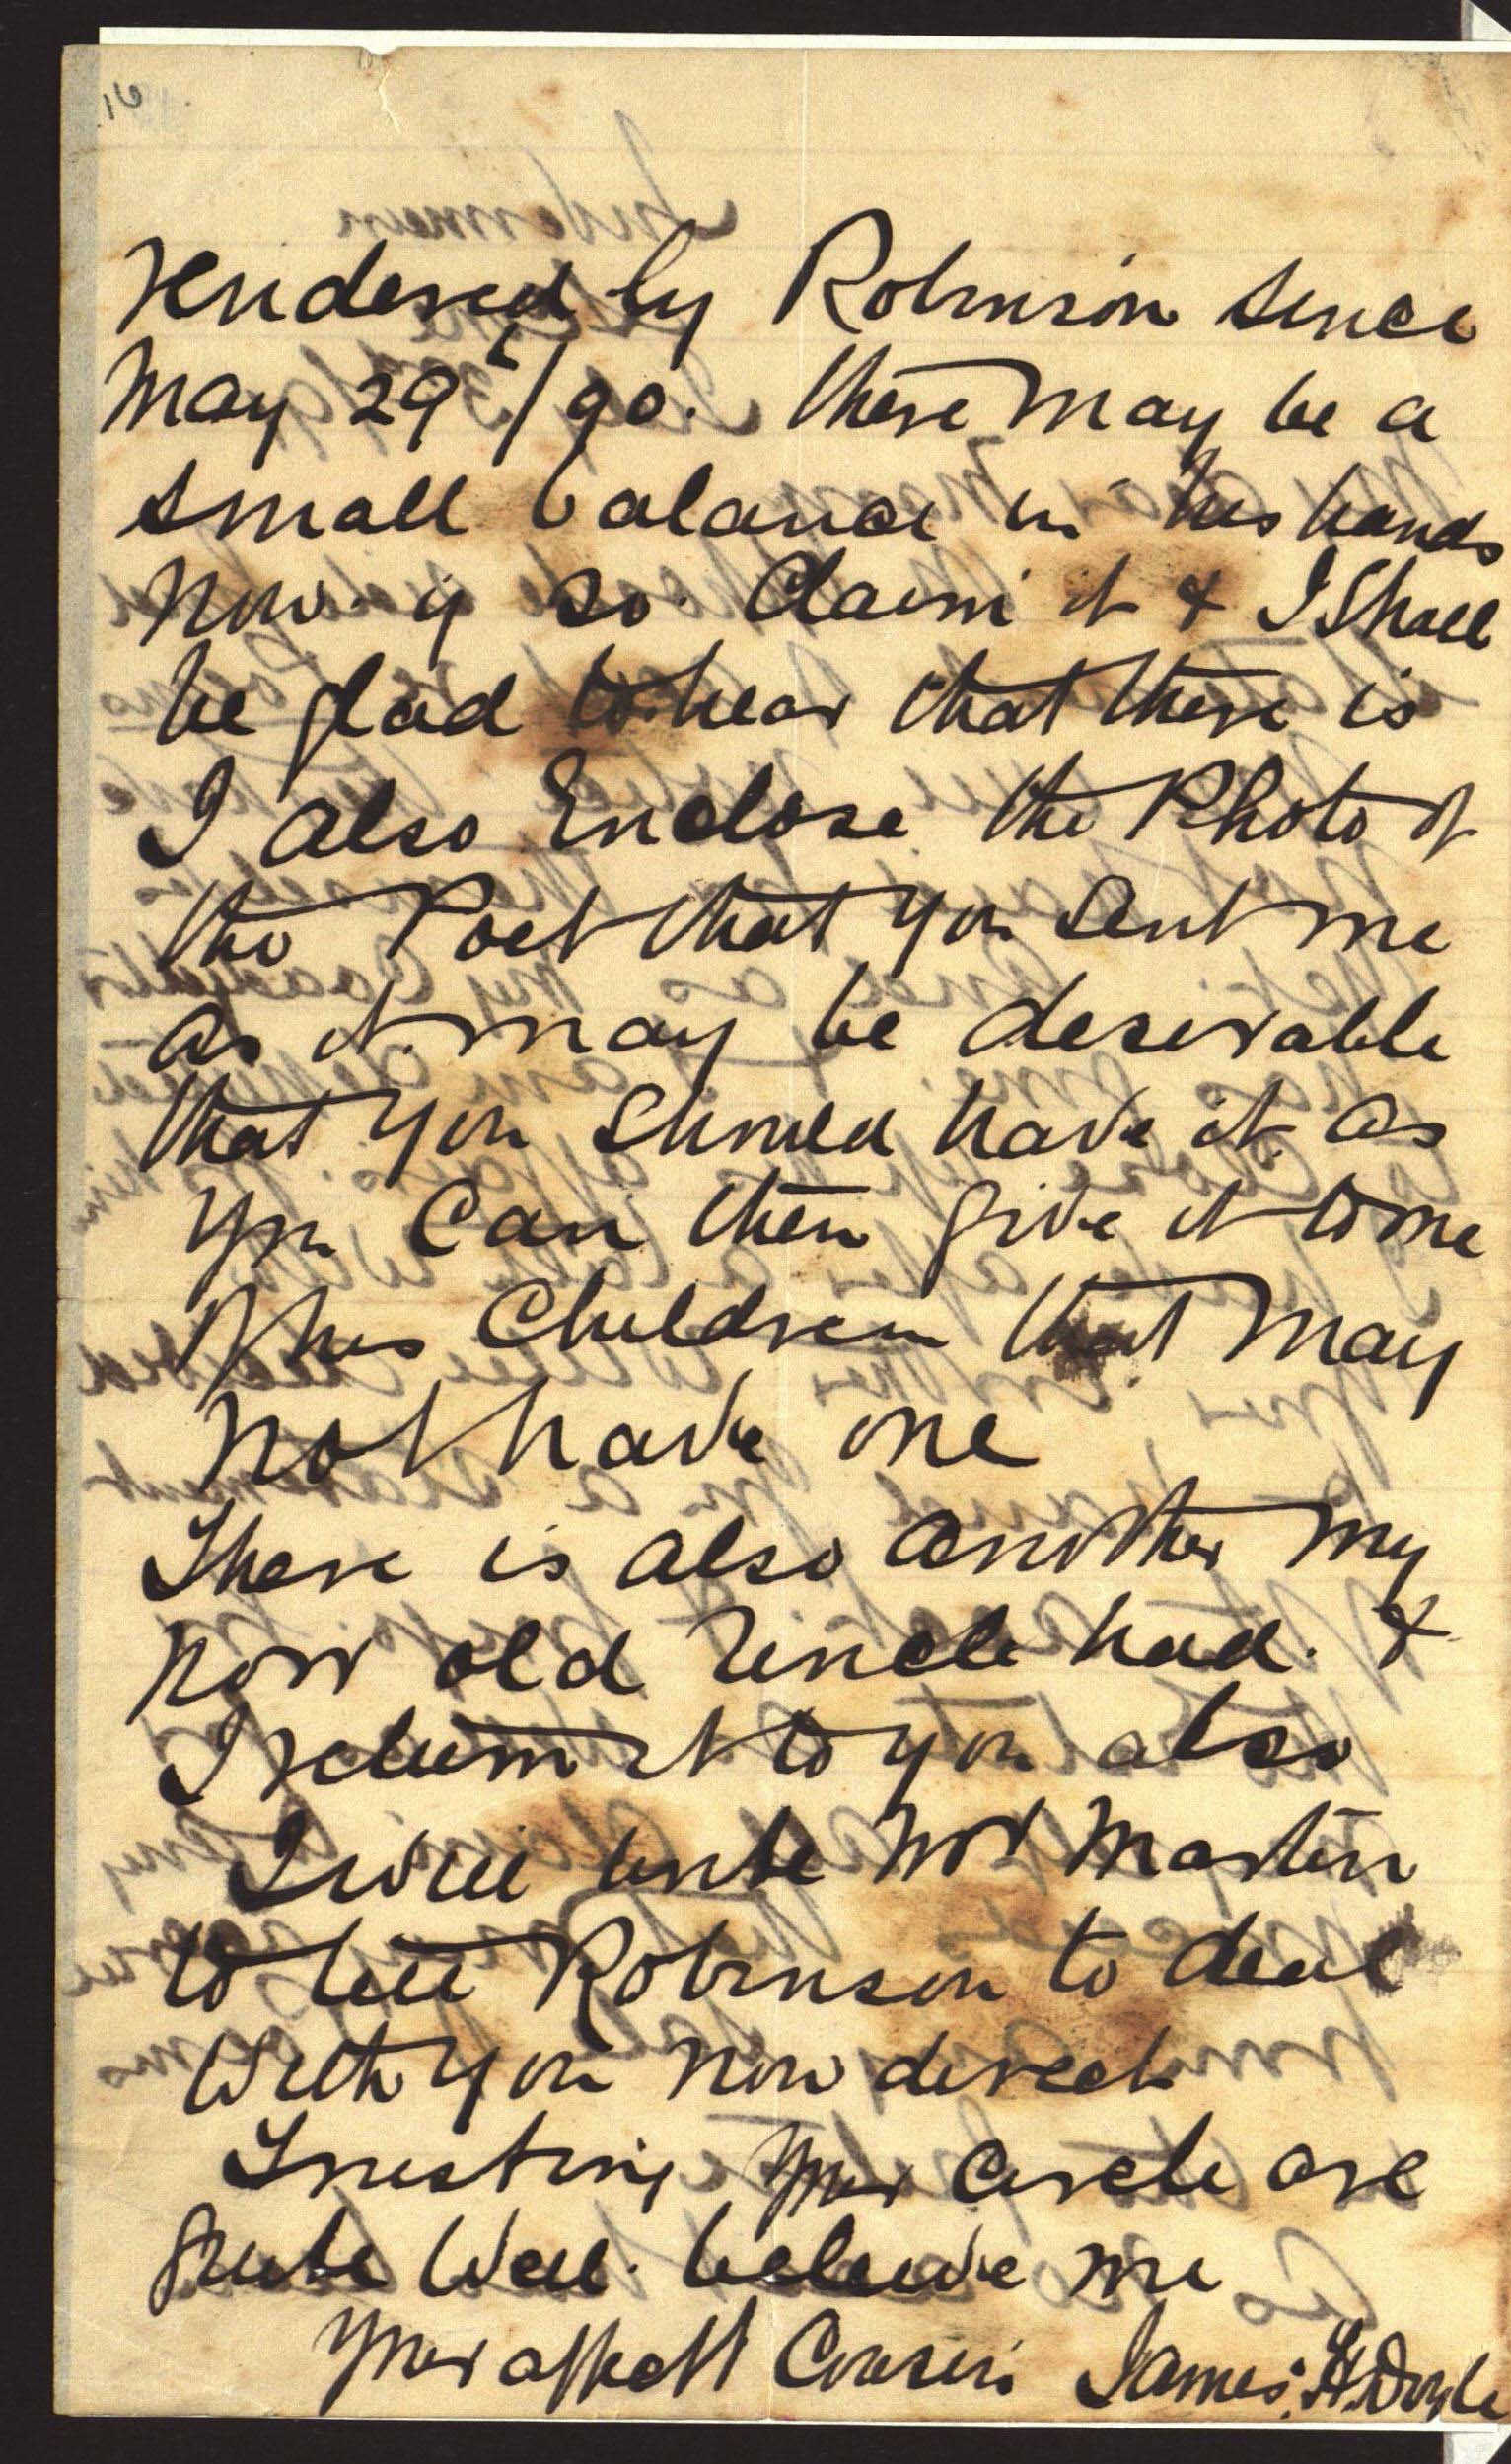 16
rendered by Robinson since
May 29t/90. there may be a
small balance in his hands
now. if so. Claim it & I Shall
be glad to hear that there is
I also Enclose the Photo of
the Poet that you sent me
as it may be desirable
that you should have it as
you can then give it to one
of his Children that may
not have one
There is also another my
poor old Uncle had. &
I return it to you also
I will write Mr Martin
to tell Robinson to deal
with you now direct
Trusting your circle are
quite well. believe me
your affectt Cousin James. H. Doyle